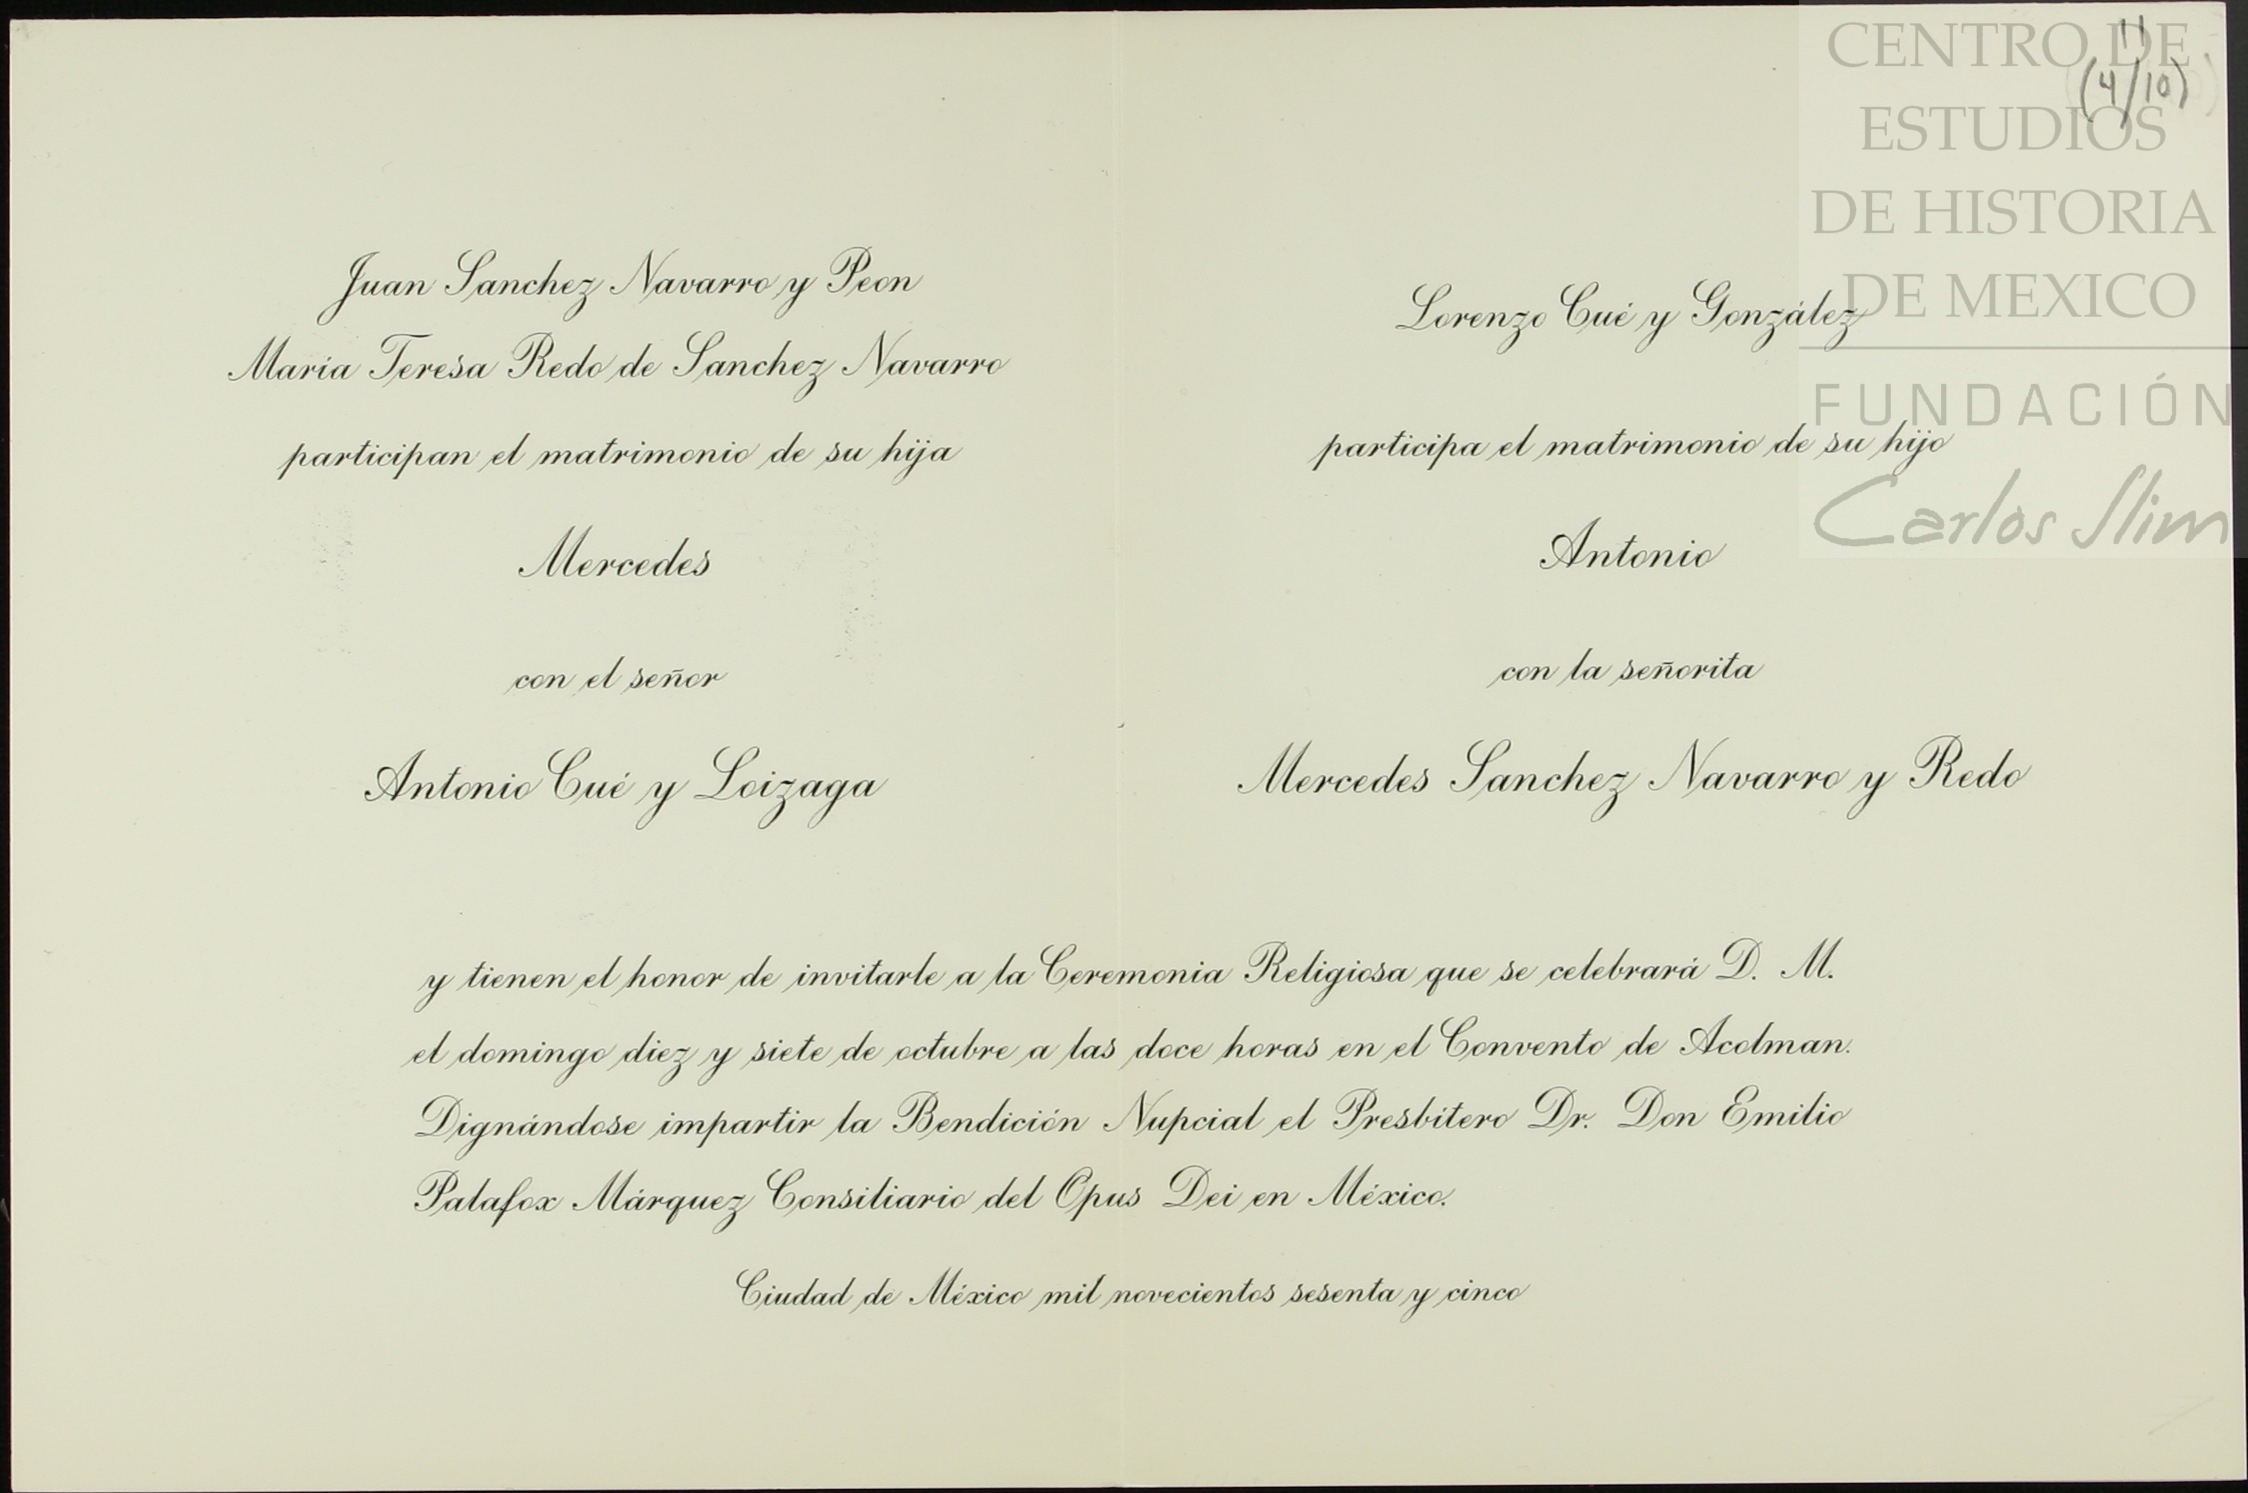 Juan Sanchez Navarro y Peon
María Teresa Redo de Sanchez Navarro
participan el matrimonio de su hija
Mercedes
con el señor
Antonio Cué y Loizaga
Lorenzo Cué y González
participa el matrimonio de su hijo
Antonio
con la señorita
Mercedes Sanchez Navarro y Redo
y tienen el honor de invitarle a la Ceremonia Religiosa que se celebrará D. M.
el domingo diez y siete de octubre a las doce horas en el Convento de Acolman.
Dignándose impartir la Bendición Nupcial el Presbítero Dr. Don Emilio
Palafox Márquez Consiliario del Opus Dei en México.
Ciudad de México mil novecientos sesenta y cinco
11
(4/10)
CENTRO DE
ESTUDIOS
DE HISTORIA
DE MEXICO
FUNDACIÓN
Carlos Slim